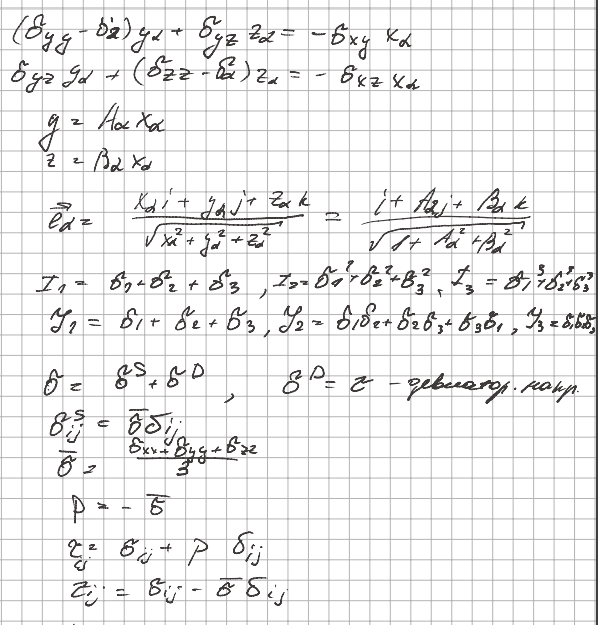 (σyy - σα) yα + σyz zα = - σxy xα
σyz yα + (σzz - σα) zα = - σxz xα
y = Aα xα
z = Bα xα
eα = (xα i + yα j + zα k) / √(xα² + yα² + zα²) = (i + Aα j + Bα k) / √(1 + Aα² + Bα²)
I₁ = σ₁ + σ₂ + σ₃ , I₂ = σ₁² + σ₂² + σ₃² , I₃ = σ₁³ + σ₂³ + σ₃³
J₁ = σ₁ + σ₂ + σ₃ , J₂ = σ₁σ₂ + σ₂σ₃ + σ₃σ₁ , J₃ = σ₁σ₂σ₃
σ = σ^S + σ^D , σ^D = τ - девиатор. напр.
σ^S ij = σ̄ δij
σ̄ = (σxx + σyy + σzz) / 3
p = - σ̄
τij = σij + p δij
τij = σij - σ̄ δij